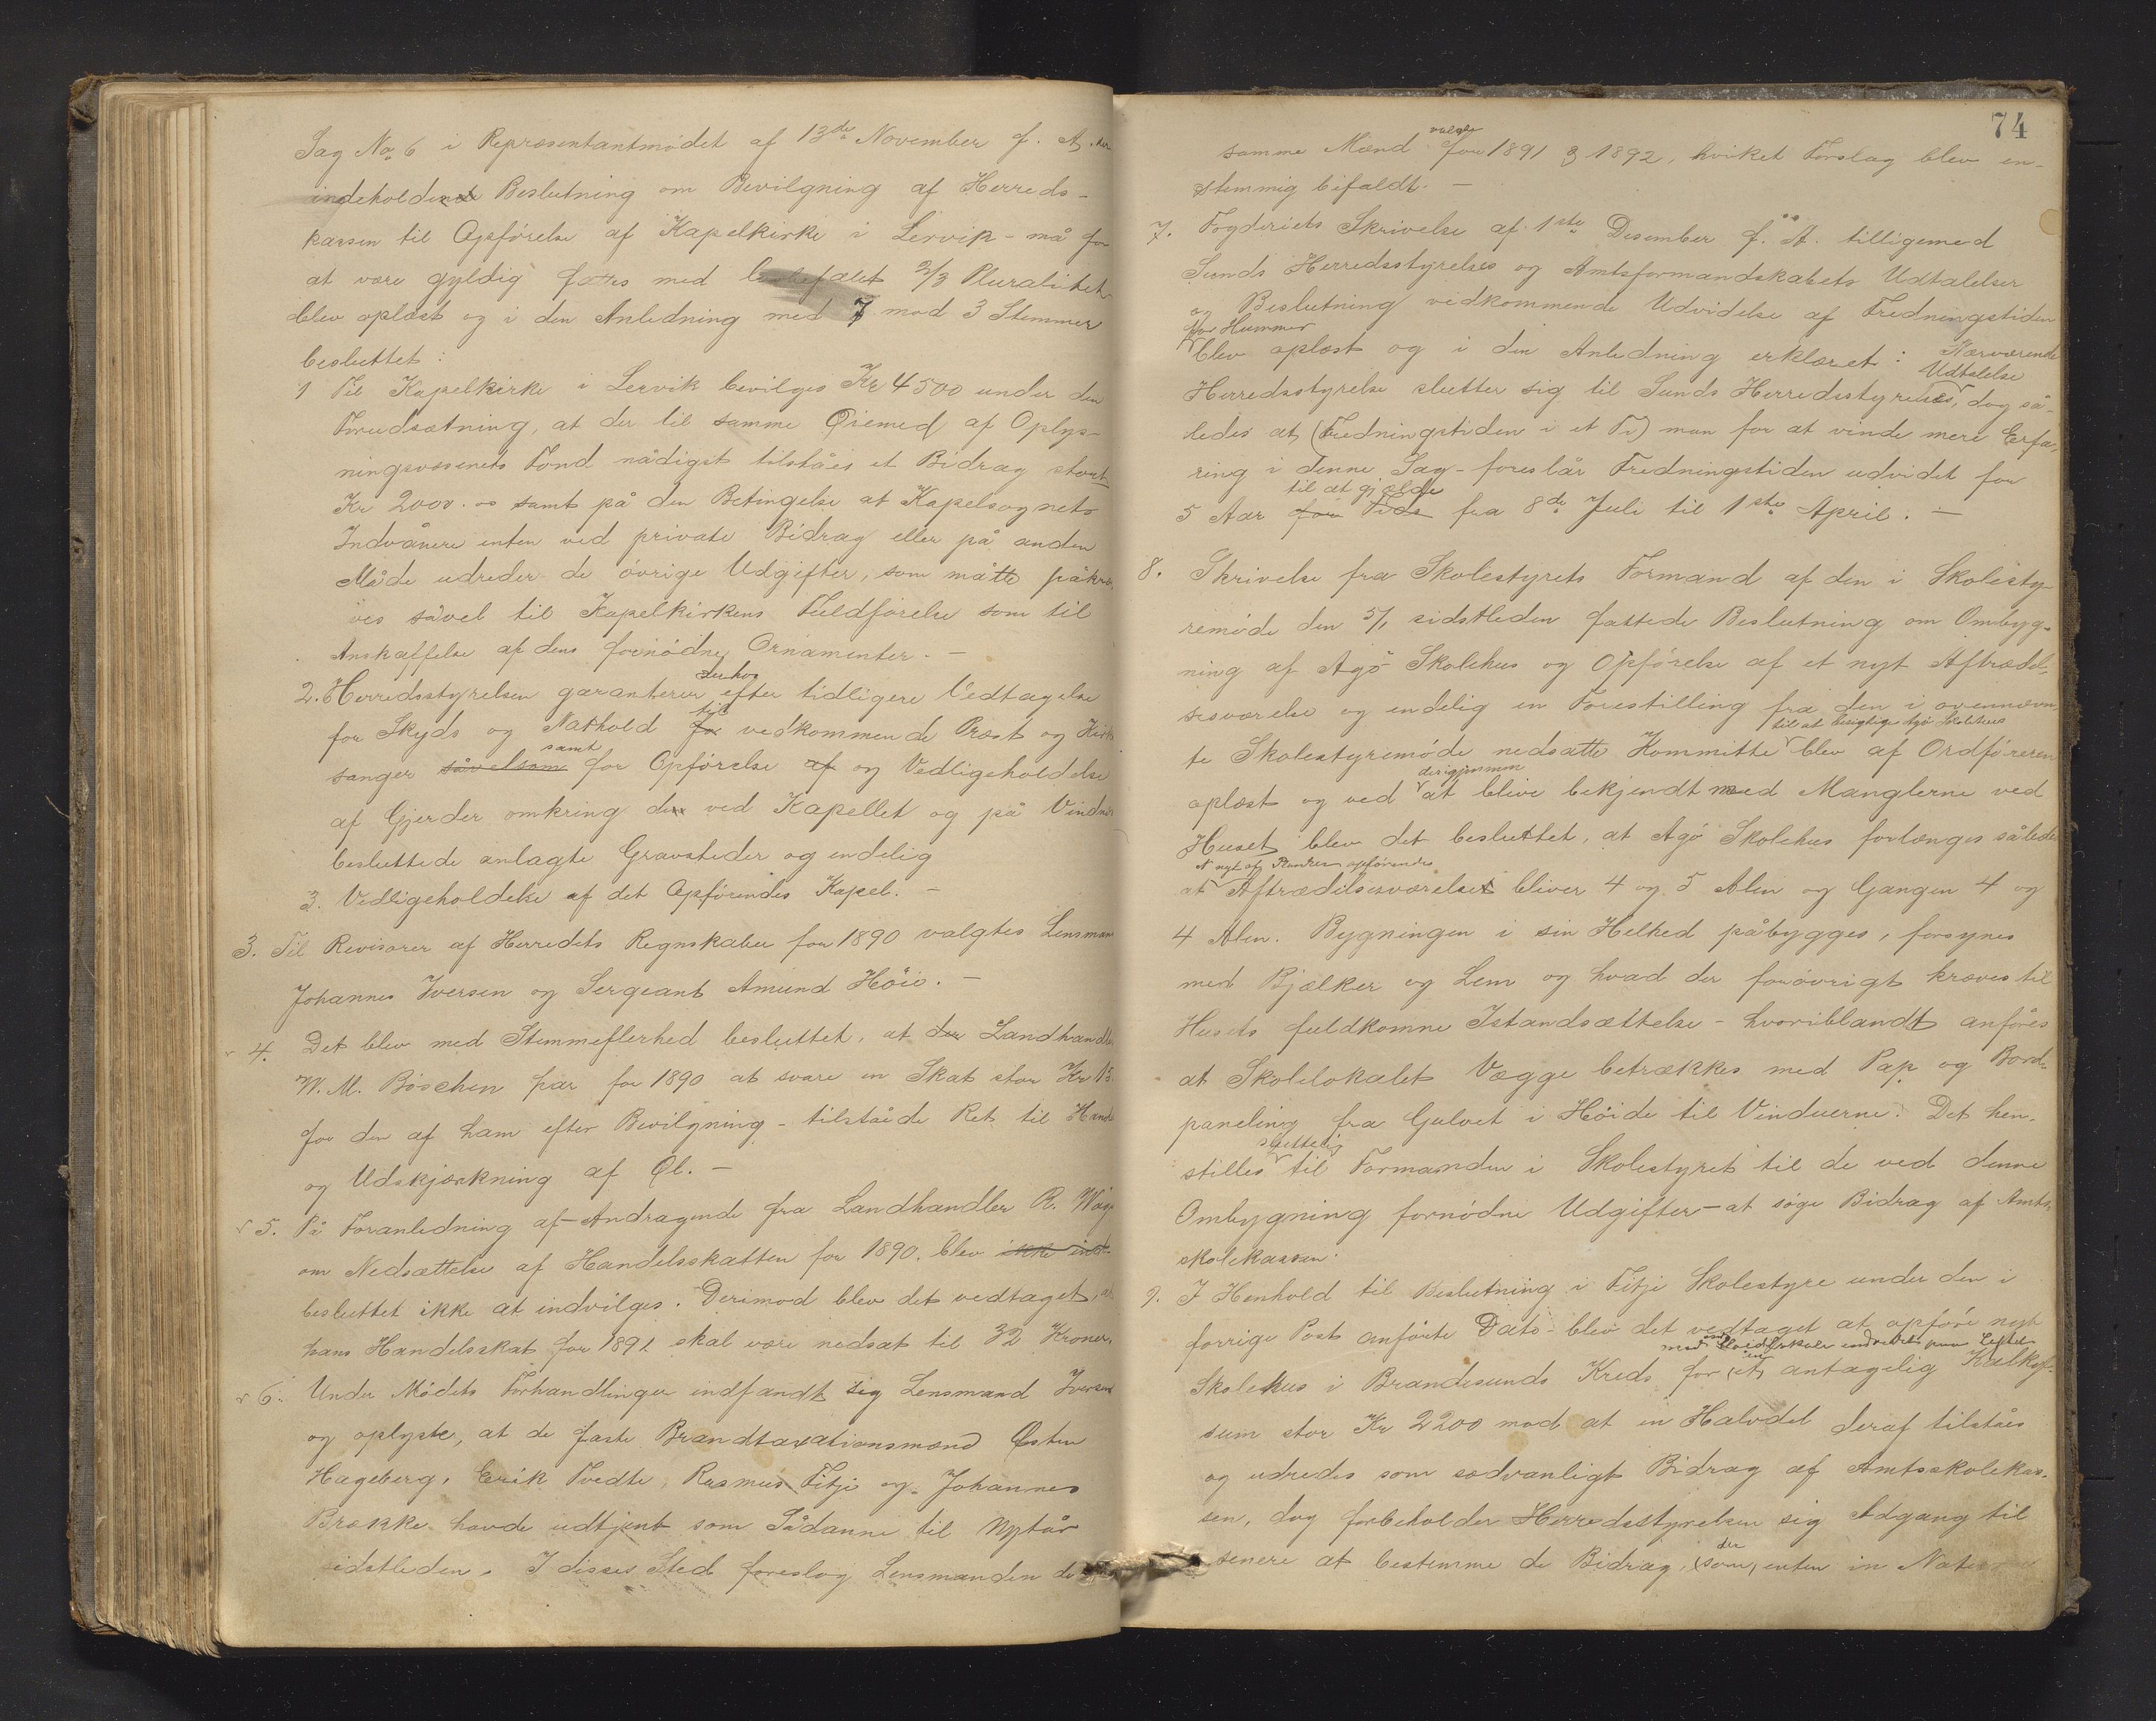 Sag No 6 i Repræsentantmødet af 13de November f. A.
indeholdende Beslutning om Bevilgning af Herreds-
kassen til Opførelse af Kapelkirke i Lervik - må for
at være gyldig fattes med 2/3 Pluralitet
blev oplæst og i den Anledning med 7 mod 3 Stemmer
besluttet:
1 Til Kapelkirke i Lervik bevilges Kr 4500 under den
Forudsætning, at der til samme Øiemed af Oplys-
ningsvæsenets Fond nådigst tilståes et Bidrag stort
Kr 2000.00 samt på den Betingelse at Kapelsognets
Indvånere enten ved private Bidrag eller på anden
Måde udreder de øvrige Udgifter, som måtte påkræ-
ves såvel til Kapelkirkens Fuldførelse som til
Anskaffelse af dens fornødne Ornamenter. -
2. Herredsstyrelsen garanterer derhos efter tidligere Vedtagelse
for Skyds og Nathold for til vedkommende Præst og Kirke
sanger såvelsom samt for Opførelse af og Vedligeholdelse
af Gjerder omkring de ved Kapellet og på
besluttede anlagte Gravsteder og endelig
3. Vedligeholdelse af det Opførendes Kapel. -
3. Til Revisorer af Herredets Regnskaber for 1890 valgtes Lensmand
Johannes Iversen og Sergeant Amund Høie. -
4. Det blev med Stemmeflerhed besluttet, at der Landhandler
W. M. Bøschen har for 1890 at svare en Skat stor Kr
for den af ham efter Bevilgning - tilståede Ret til Handel
og Udskjænkning af Øl. -
5. På Foranledning af Andragende fra Landhandler R.
om Nedsættelse af Handelsskatten for 1890. blev ikke ind-
besluttet ikke at indvilges. Derimod blev det vedtaget, at
hans Handelsskat for 1891 skal være nedsat til 32 Kroner.
6. Under Mødets Forhandlinger indfandt sig Lensmand Iversen
og oplyste, at de faste Brandtaxationsmænd Østen
Hageberg, Erik Tvedte, Rasmus Fitje og Johannes
Brække havde udtjent som Sådanne til Nytår
sidstleden. I disses Sted foreslog Lensmanden de
74
samme Mænd valgte for 1891 & 1892, hvilket Forslag blev en-
stemmig bifaldt. -
7. Fogderiets Skrivelse af 1ste Desember f. A. tilligemed
Sunds Herredsstyrelses og Amtsformandskabets Udtalelser
og Beslutning vedkommende Udvidelse af Fredningstiden
for Hummer
blev oplæst og i den Anledning erklæret: Nærværende
Herredsstyrelse slutter sig til Sunds Herredsstyrelses Udtalelse, dog så-
ledes at (Fredningstiden i et Ti) man for at vinde mere Erfa-
ring i denne Sag - foreslår Fredningstiden udvidet for
5 Aar for Tide til at gjælde fra 8de Juli til 1ste April. -
8. Skrivelse fra Skolestyrets Formand af den i Skolesty-
remøde den 5/1 sidstleden fattede Beslutning om Ombyg-
ning af Agø Skolehus og Opførelse af et nyt Aftrædel-
sesværelse og endelig en Forestilling fra den i ovennævn-
te Skolestyremøde nedsatte Kommitte til at besigtige Agø Skolehus blev af Ordføreren
oplæst og ved derigjennem at blive bekjendt med Manglerne ved
Huset blev det besluttet, at Agø Skolehus forlænges således
at et nyt af Planker opførendes Aftrædelsesværelset bliver 4 og 5 Alen og Gangen 4 og
4 Alen. Bygningen i sin Helhed påbygges, forsynes
med Bjælker og Lem og hvad der forøvrigt kræves til
Husets fuldkomne Istandsættelse - hvoriblandt anføres
at Skolelokalet Vægge betrækkes med Pap og Bord-
paneling fra Gulvet i Høide til Vinduerne. Det hen-
stilles sluttelig til Formanden i Skolestyret til de ved denne
Ombygning fornødne Udgifter - at søge Bidrag af Amts-
skolekassen.
9. I Henhold til Beslutning i Fitje Skolestyre under den i
forrige Post anførte Dato - blev det vedtaget at opføre nyt
Skolehus i Brandesunds Kreds for en antagelig Kalkyl-
sum stor Kr 2200 mod at en Halvdel deraf tilståes
og udredes som sædvanligt Bidrag af Amtsskolekas-
sen, dog forbeholder Herredsstyrelsen sig Adgang til
senere at bestemme de Bidrag, (som) der enten in